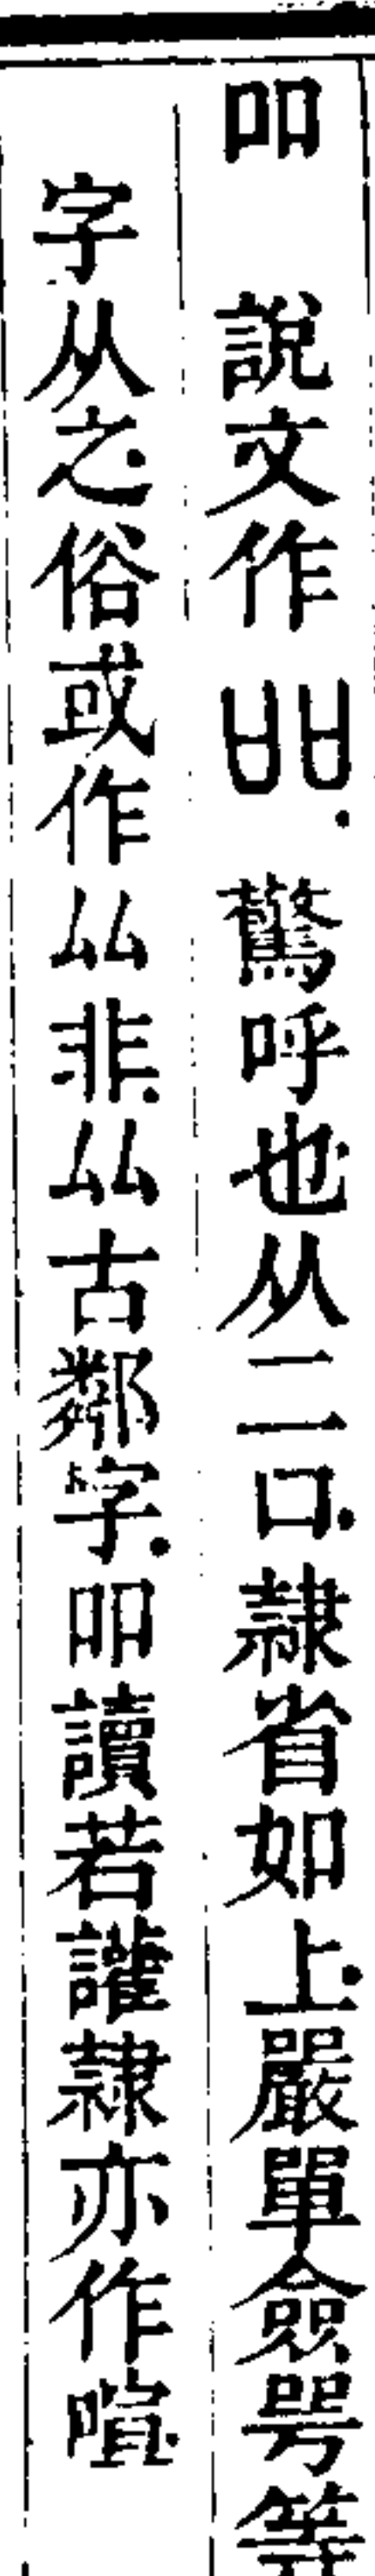 吅 說文作吅驚呼也从二口隷省如上嚴單僉咢等
字从之俗或作厸非厸古鄰字吅讀若讙隷亦作喧